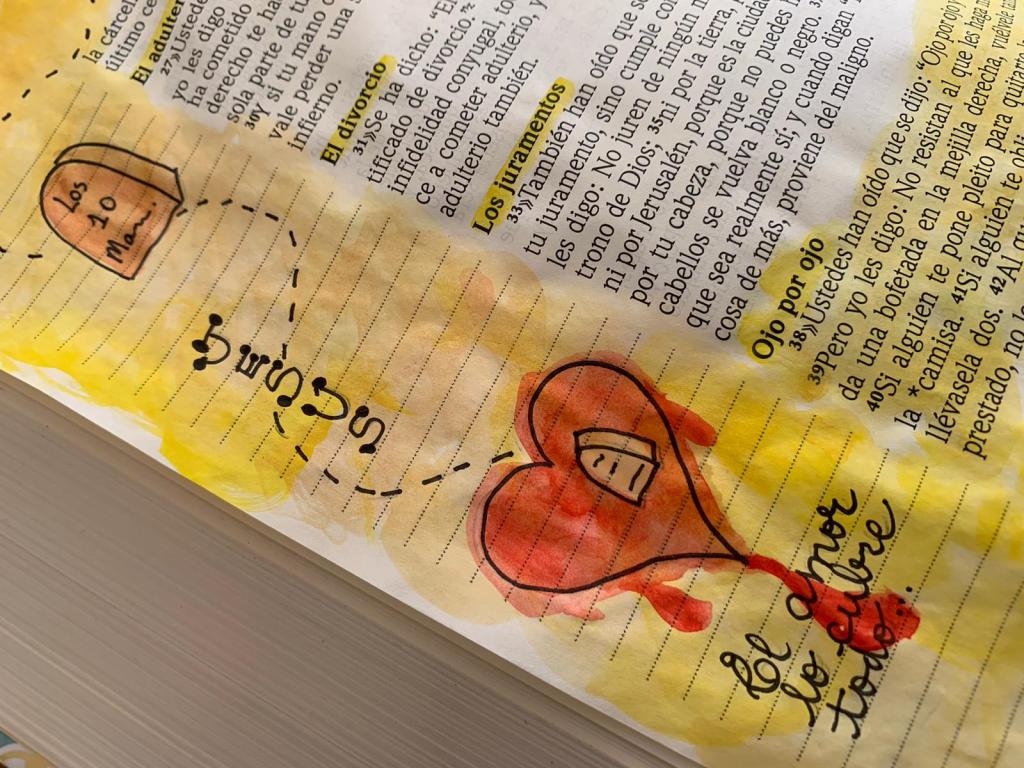 la cárcel
último ce
El adulter
27»Ustede
yo les digo
ha cometido
derecho te ha
sola parte de tu
30Y si tu mano d
vale perder una s
infierno.
El divorcio
31»Se ha dicho: “El
tificado de divorcio.”
infidelidad conyugal, to
ce a cometer adulterio, y
adulterio también.
Los juramentos
33»También han oído que se
tu juramento, sino cumple con
les digo: No juren de ningún m
trono de Dios; 35ni por la tierra,
ni por Jerusalén, porque es la ciuda
por tu cabeza, porque no puedes h
cabellos se vuelva blanco o negro.
que sea realmente sí; y cuando digan “
cosa de más, proviene del maligno.
Ojo por ojo
38»Ustedes han oído que se dijo: “Ojo por ojo y
39Pero yo les digo: No resistan al que les haga m
da una bofetada en la mejilla derecha, vuélvele
40Si alguien te pone pleito para quitart
la *camisa. 41Si alguien te obli
llévasela dos. 42Al q
prestado, no l
Los
10
Man.
JESÚS
El amor
lo cubre
todo...